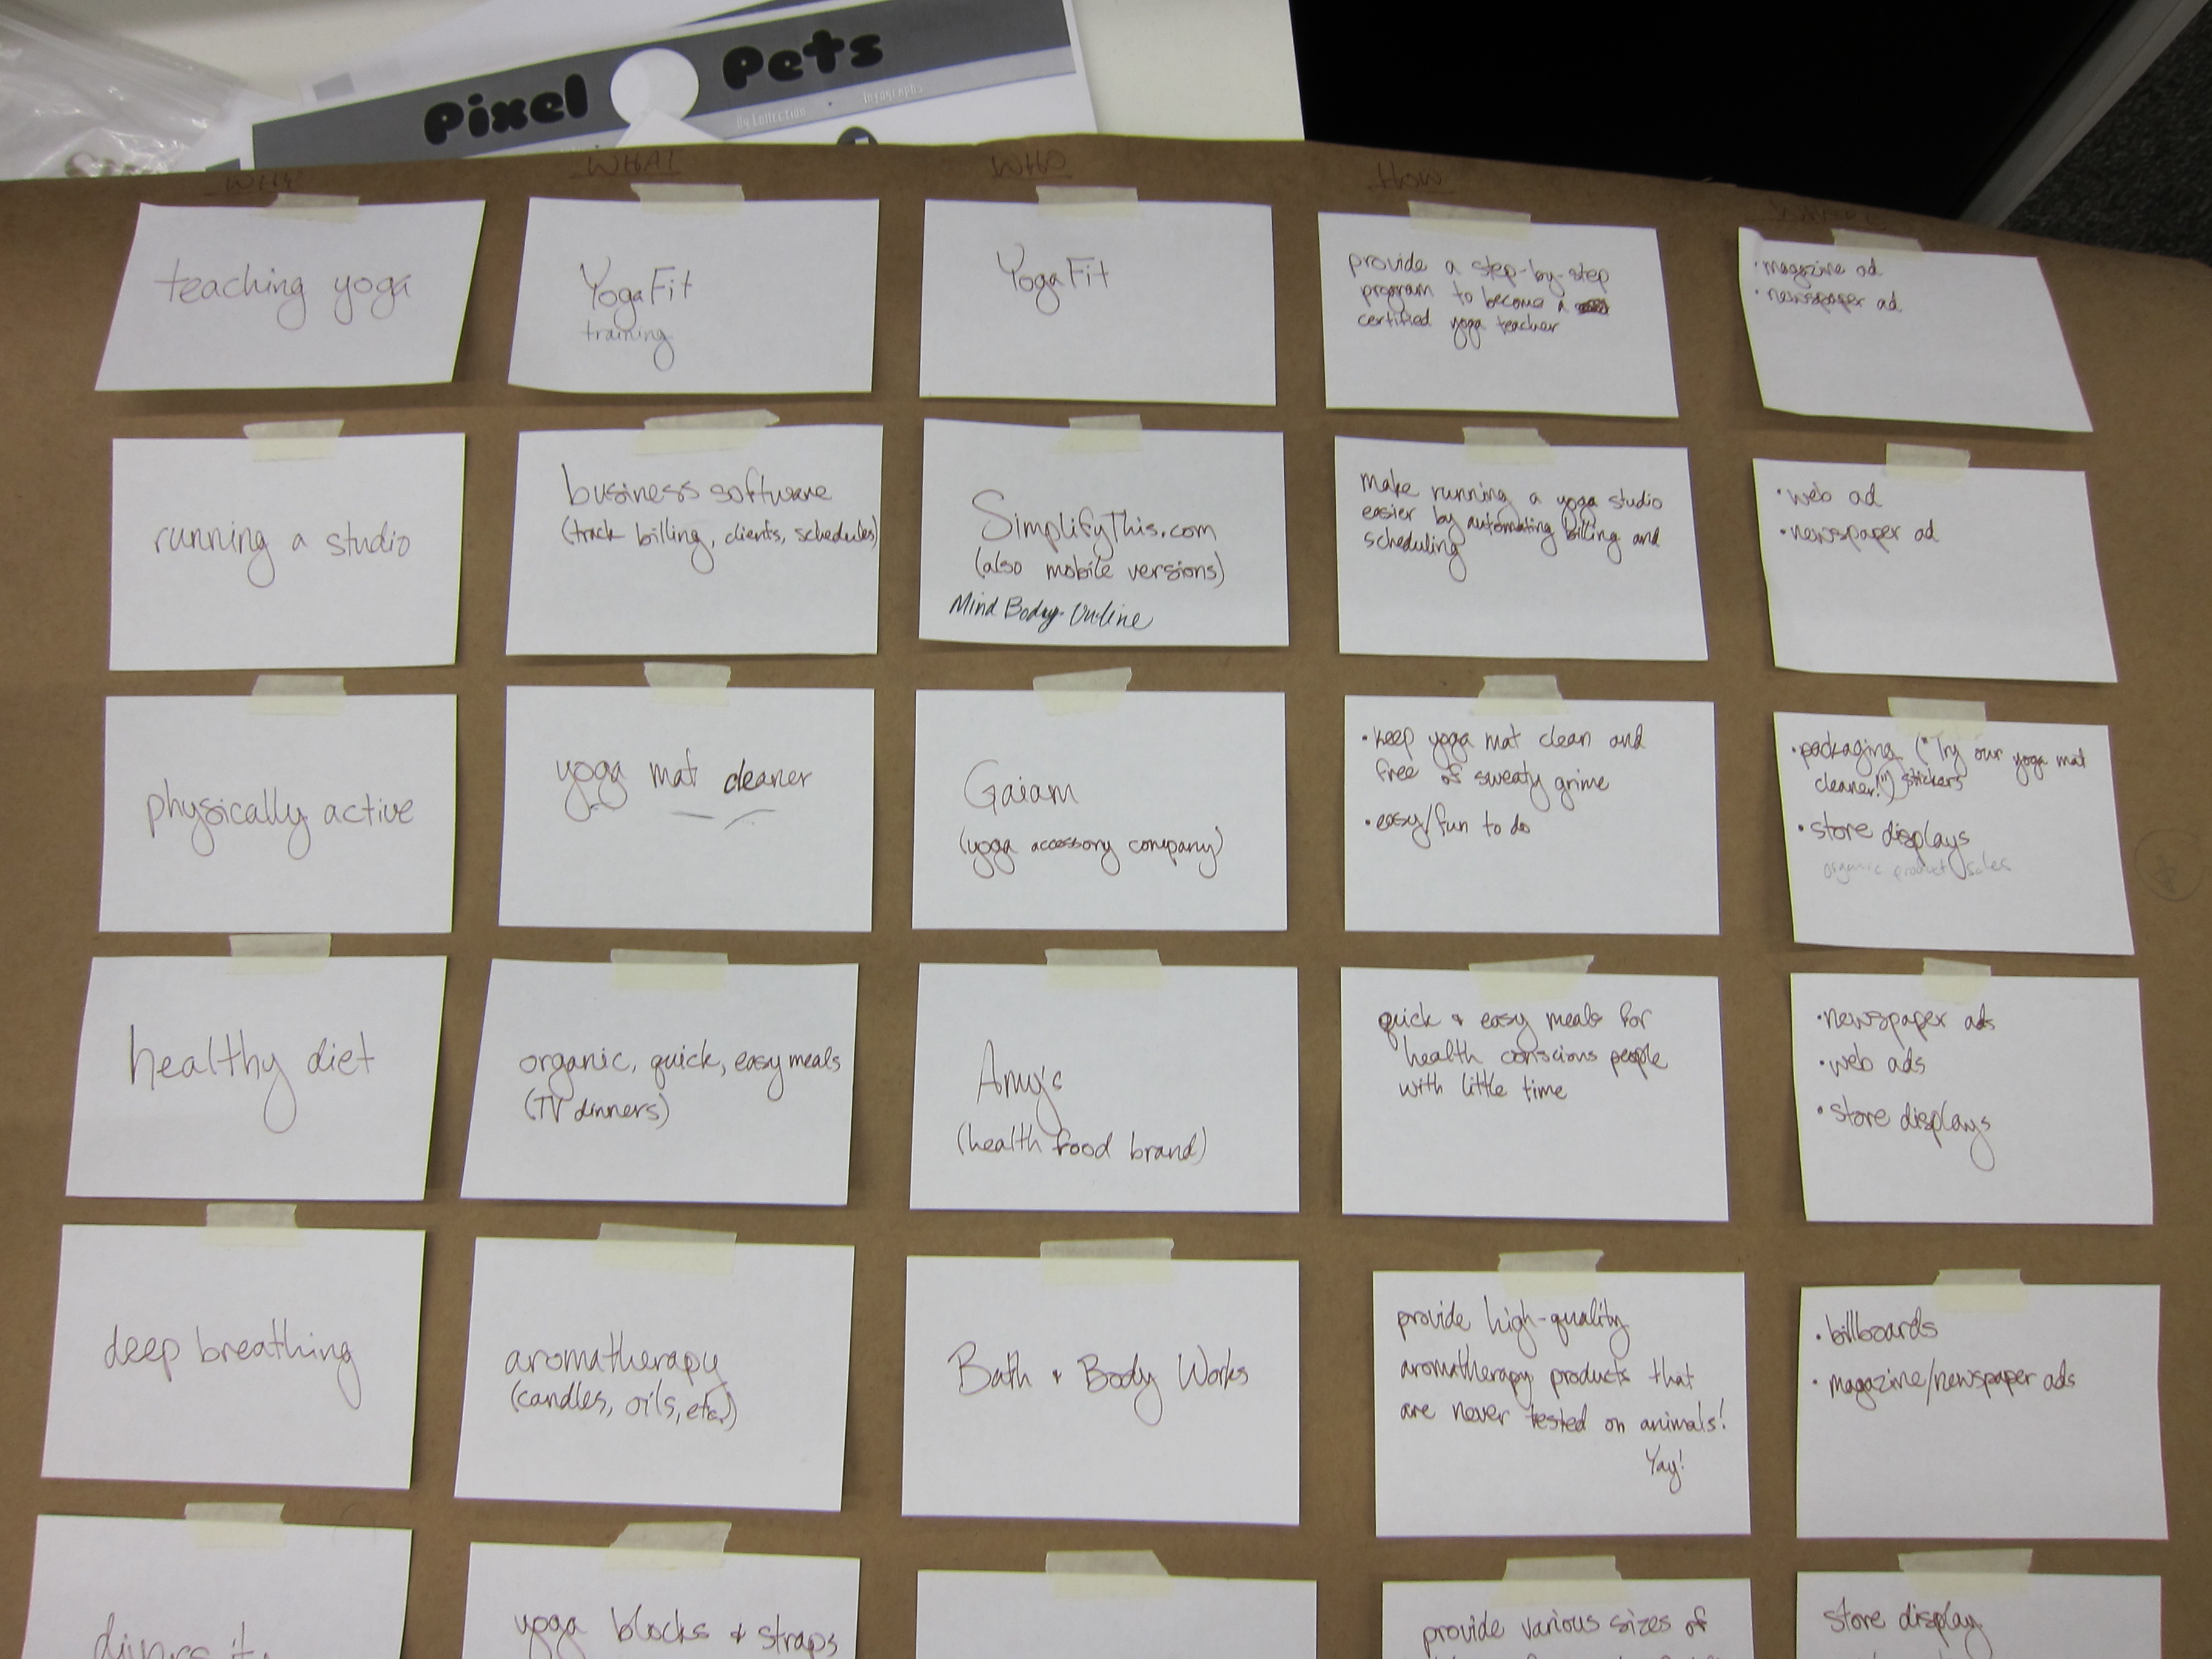 Pixel Pets
By Collection • Infographs
WHY
WHAT
WHO
HOW
teaching yoga
YogaFit
training
YogaFit
provide a step-by-step
program to become a
certified yoga teacher
• magazine ad
• newspaper ad
running a studio
business software
(track billing, clients, schedules)
SimplifyThis.com
(also mobile versions)
Mind Body Online
make running a yoga studio
easier by automating billing and
scheduling
• web ad
• newspaper ad
physically active
yoga mat cleaner
Gaiam
(yoga accessory company)
• keep yoga mat clean and
free of sweaty grime
• easy/fun to do
• packaging ("Try our yoga mat
cleaner!") stickers
• store displays
organic product sales
healthy diet
organic, quick, easy meals
(TV dinners)
Amy's
(health food brand)
quick & easy meals for
health conscious people
with little time
• newspaper ads
• web ads
• store displays
deep breathing
aromatherapy
(candles, oils, etc.)
Bath & Body Works
provide high-quality
aromatherapy products that
are never tested on animals!
Yay!
• billboards
• magazine/newspaper ads
yoga blocks & straps
provide various sizes of
store display